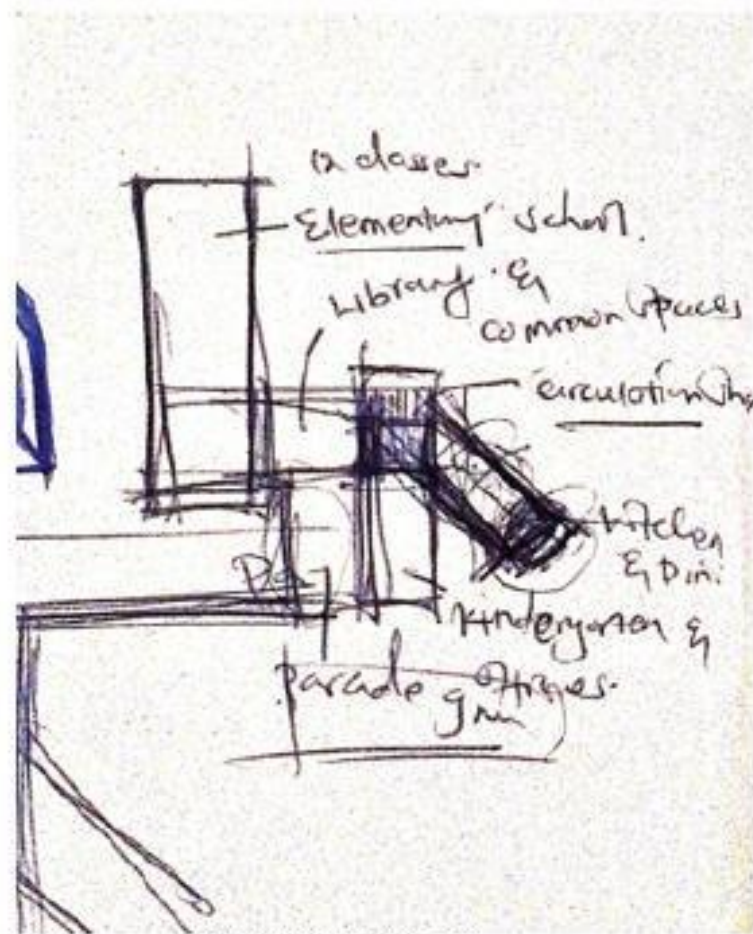 12 classes
Elementary school.
Library &
common spaces
circulation
kitchen
& Din.
Kindergarten &
offices.
parade